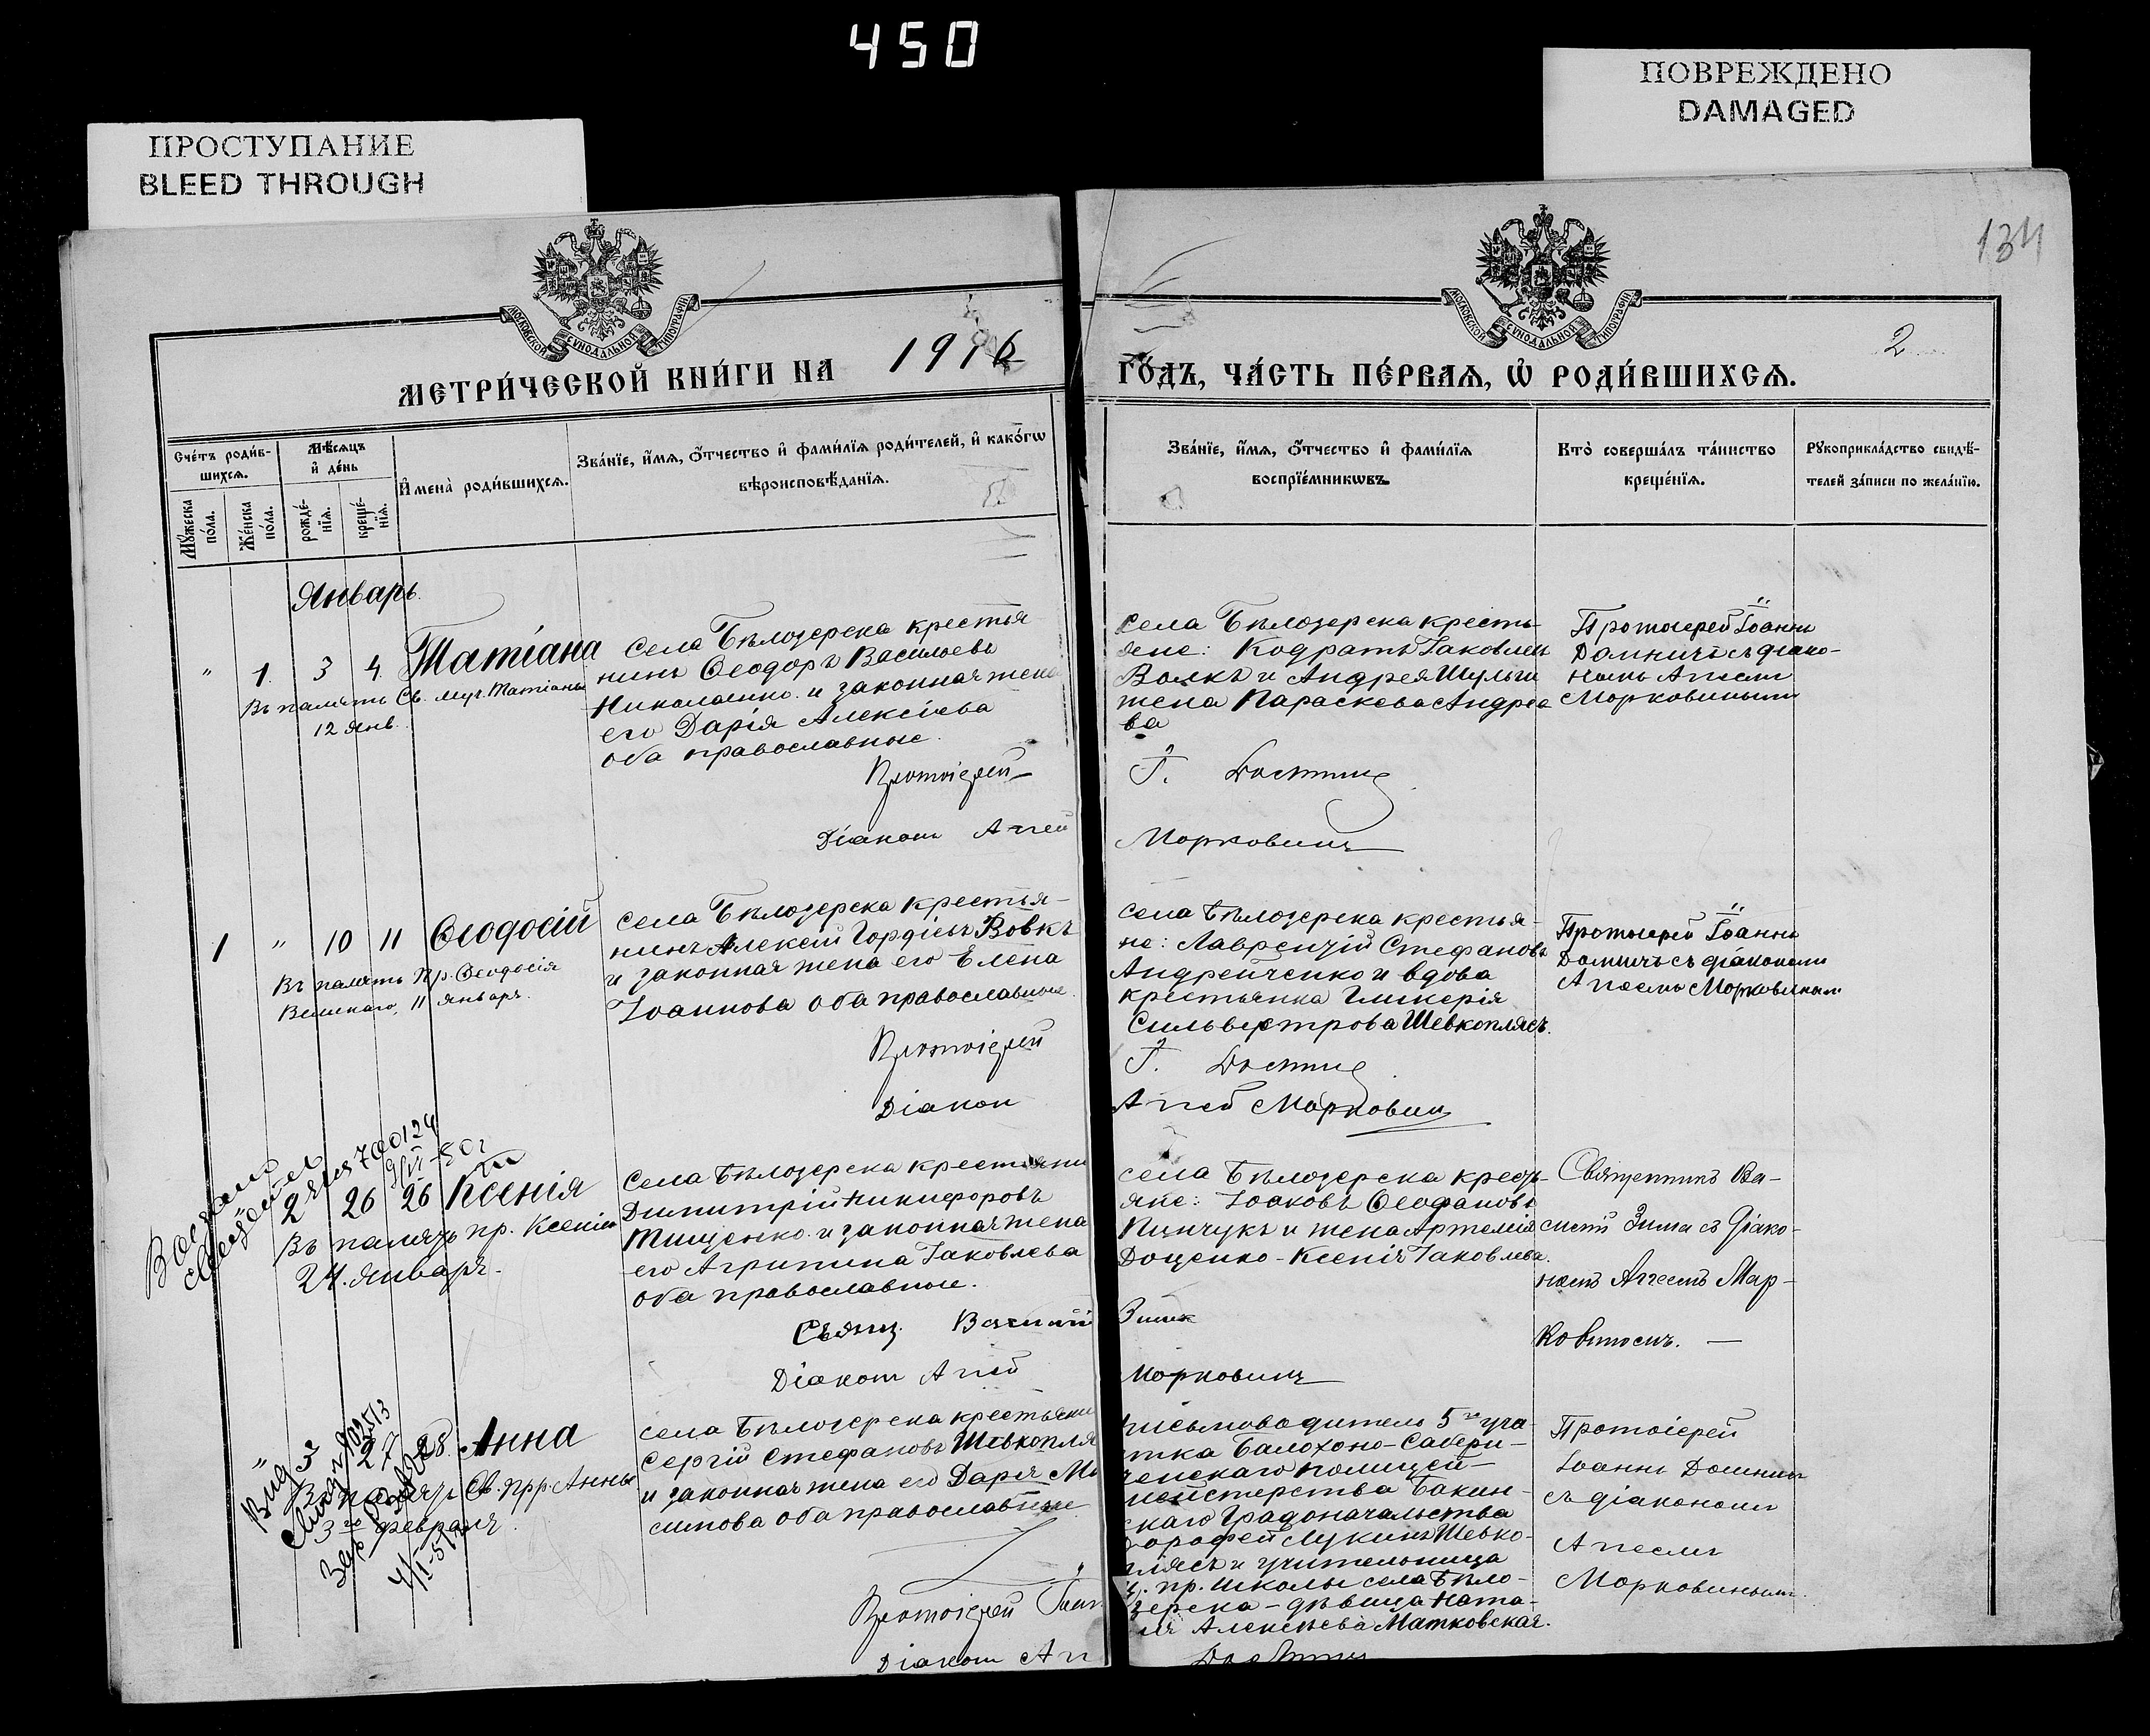 450
ПОВРЕЖДЕНО
DAMAGED
ПРОСТУПАНИЕ
BLEED THROUGH
134
МОСКОВСКОЙ СѴНОДАЛЬНОЙ ТИПОГРАФІИ
МОСКОВСКОЙ СѴНОДАЛЬНОЙ ТИПОГРАФІИ
2
МЕТРИ́ЧЕСКОЙ КНИ́ГИ НА 1916 ГО́ДЪ, ЧА́СТЬ ПЕ́РВАЯ, Ѡ҆ РОДИ́ВШИХСЯ.
Сче́тъ роди́в-
шихся.
Мѣ́сяцъ
и҆ де́нь
И҆мена̀ роди́вшихся.
Зва́нїе, и҆́мя, ѻ҆́тчество и҆ фами́лїя роди́телей, и҆ како́гѡ
вѣроисповѣ́данїя.
Мꙋ́жеска
по́ла.
Же́нска
по́ла.
рожде́-
нїя.
креще́-
нїя.
Зва́нїе, и҆́мя, ѻ҆́тчество и҆ фами́лїя
воспрїе́мникѡвъ.
Кто̀ соверша́лъ та́инство
креще́нїя.
Рꙋкоприкла́дство свидѣ́-
телей за́писи по жела́нїю.
Январь.
" 1. 3 4. Татіана
Въ память Св. муч. Татіаны
12 янв.
Села Бѣлозерска крестья
нинъ Ѳеодоръ Васильевъ
Николаенко и законная жена
его Дарія Алексіева
оба православные.
Протоіерей
Діаконъ Аггей
села Бѣлозерска кресть-
яне: Кодратъ Іаковлевъ
Волкъ и Андрея Шульги
жена Параскева Андрее
ва
І. Домнич
Морковинъ
Протоіерей Іоаннъ
Домничъ съ діако-
номъ Аггеемъ
Морковинымъ
1 " 10 11 Ѳеодосій
Въ память Пр. Ѳеодосія
Великаго, 11 января.
Села Бѣлозерска крестья-
нинъ Алексій Гордіевъ Вовкъ
и законная жена его Елена
Іоаннова оба православные.
Протоіерей
Діакон
села Бѣлозерска крестья-
не: Лаврентій Стефановъ
Андрейченко и вдова
крестьянка Гликерія
Сильвестрова Шевкоплясъ.
І. Домнич
Аггей Морковин
Протоіерей Іоаннъ
Домничъ съ діакономъ
Аггеемъ Морковинымъ
" 2 26 26 Ксенія
Въ память пр. Ксеніи
24. января.
Села Бѣлозерска крестьянинъ
Димитрій Никифоровъ
Тищенко и законная жена
его Агрипина Іаковлева
оба православные.
Свящ. Василій
Діаконъ Аггей
села Бѣлозерска кресть-
яне: Іоаковъ Ѳеофановъ
Пинчукъ и жена Артемія
Доценко - Ксенія Іаковлева.
Зима
Морковинъ
Священникъ Ва-
силій Зима съ діако-
номъ Аггеемъ Мар-
ковиномъ. —
" 3 27 28. Анна
Въ память Св. прр. Анны
3го февраля.
Села Бѣлозерска крестьянинъ
Сергій Стефановъ Шевкопля
и законная жена его Дарія Ма
симова оба православные
Протоіерей Іоан
Діаконъ Аг
письмоводитель 5го уча-
стка Балохоно-Сабун-
ченскаго полицей-
мейстерства Бакин-
скаго Градоначальства
Дорофей Лукинъ Шевко-
плясъ и учительница
ц. пр. школы села Бѣло-
зерска - дѣвица Ната-
лія Алексѣева Матковская.
Домнич
Протоіерей
Іоаннъ Домничъ
съ діакономъ
Аггеемъ
Морковинымъ